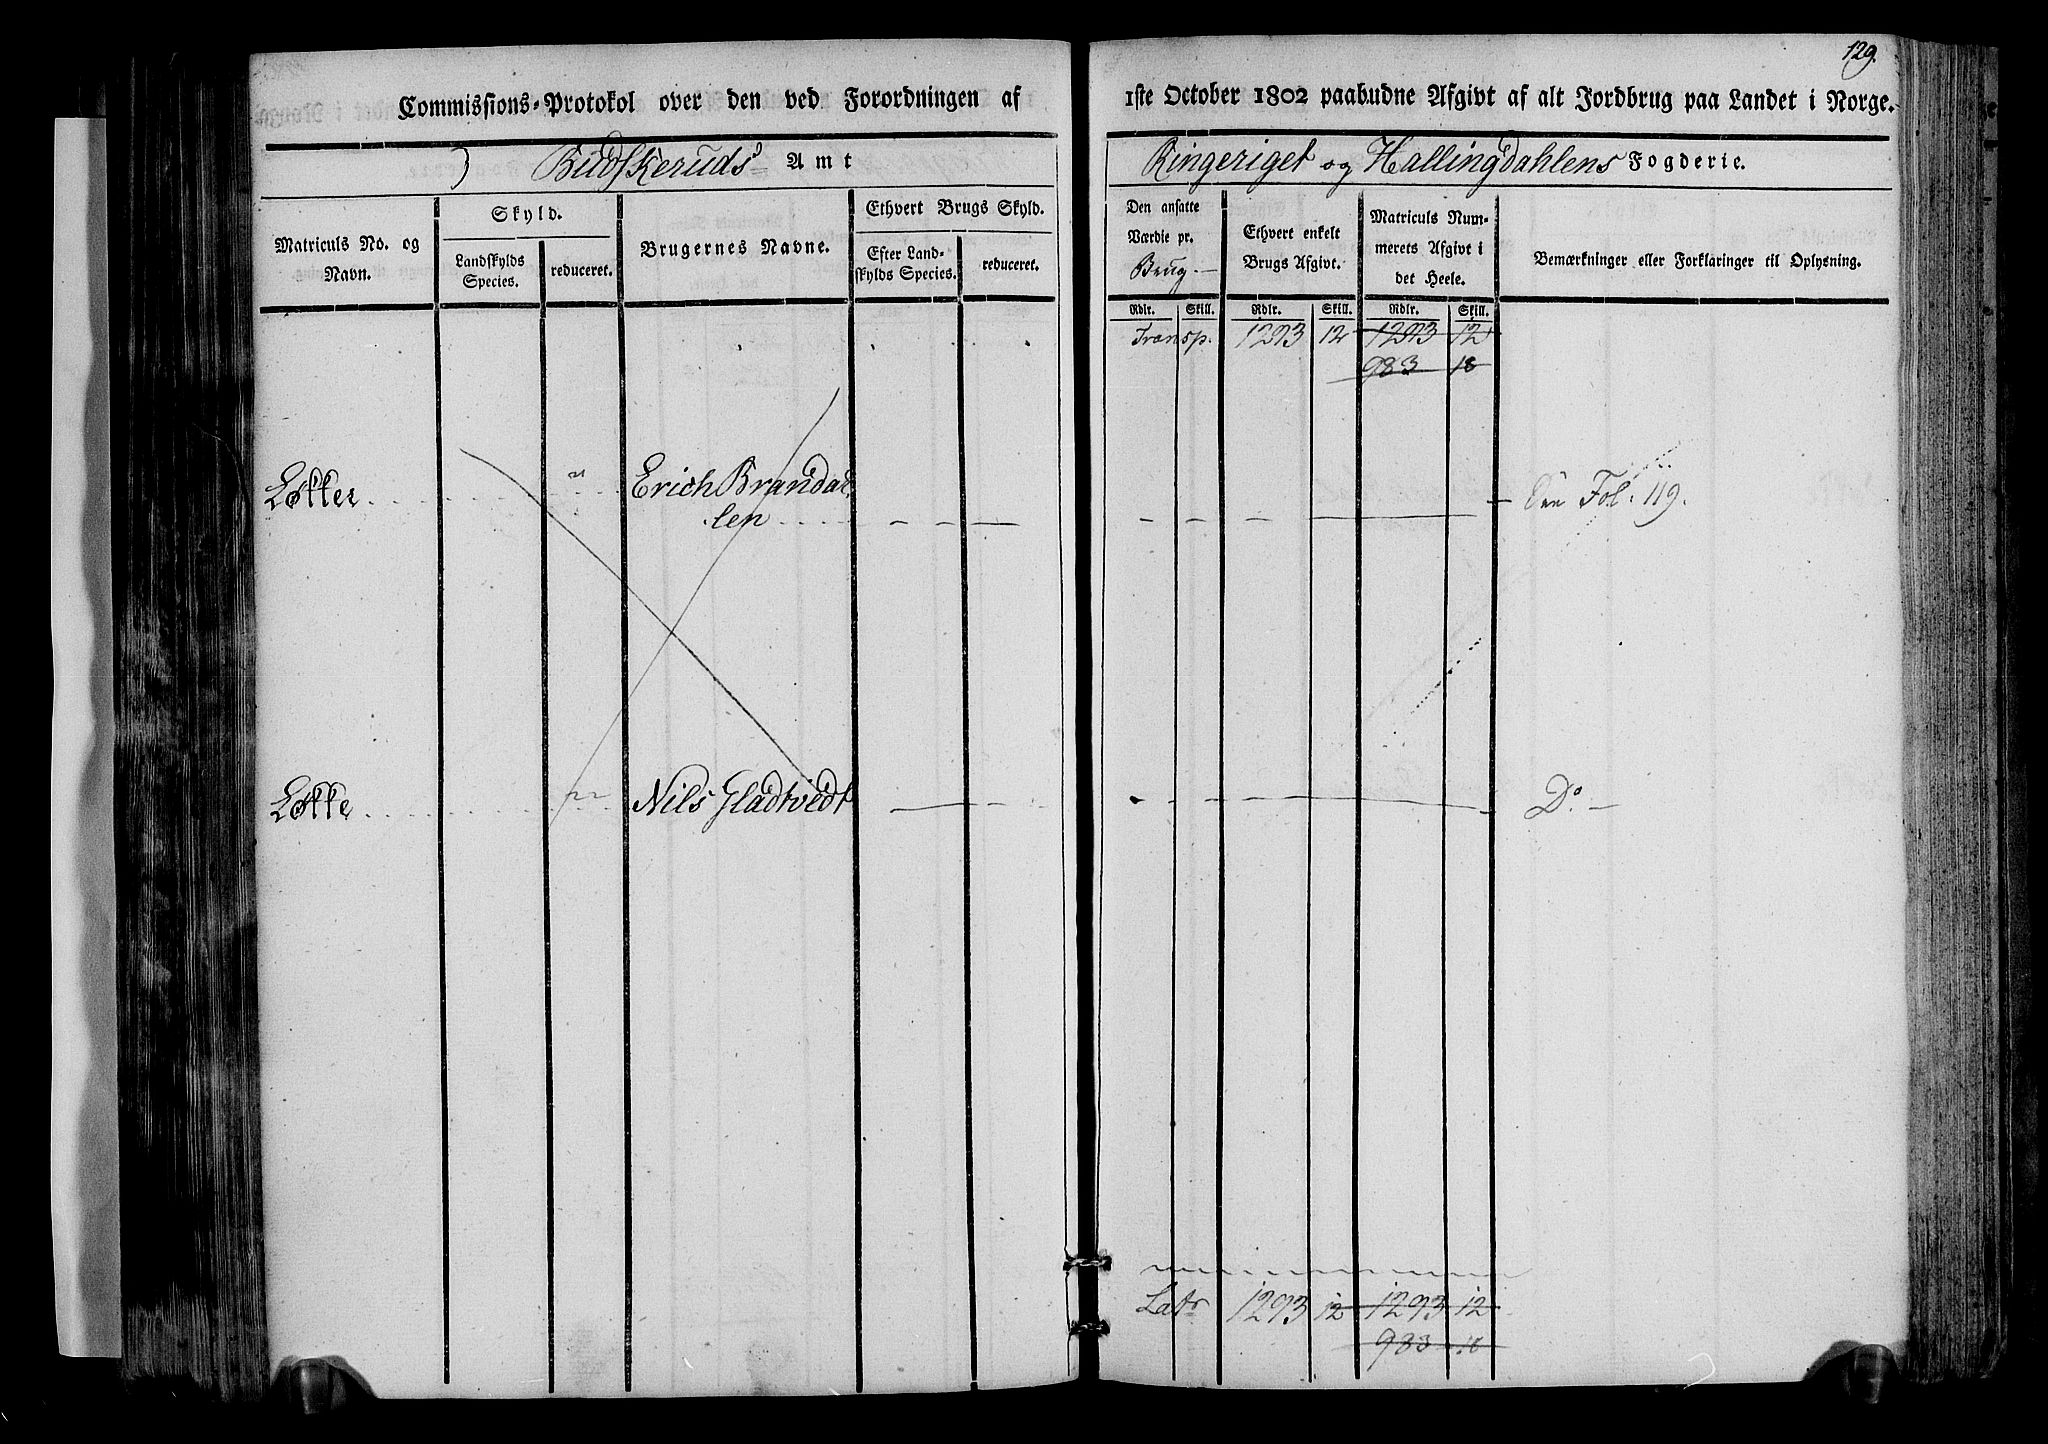 129.
Commissions-Protokol over den ved Forordningen af 1ste October 1802 paabudne Afgivt af alt Jordbrug paa Landet i Norge.
Budskeruds Amt
Ringeriget og Hallingdahlens Fogderie.
Matriculs No. og Navn.
Skyld.
Landskylds Species.
reduceret.
Brugernes Navne.
Ethvert Brugs Skyld.
Efter Landskylds Species.
reduceret.
Den ansatte Værdie pr. Brug.
Ethvert enkelt Brugs Afgivt.
Matriculs Nummerets Afgivt i det Heele.
Bemærkninger eller Forklaringer til Oplysning.
Rdlr. Skill. Rdlr. Skill. Rdlr. Skill.
Transp. 1293 12 1293 12
983 18
Løkker
Erich Brandal
len
Fol. 119.
Løkke
Nils Gladtvedt
Do
Lats 1293 12 1293 12
983 18